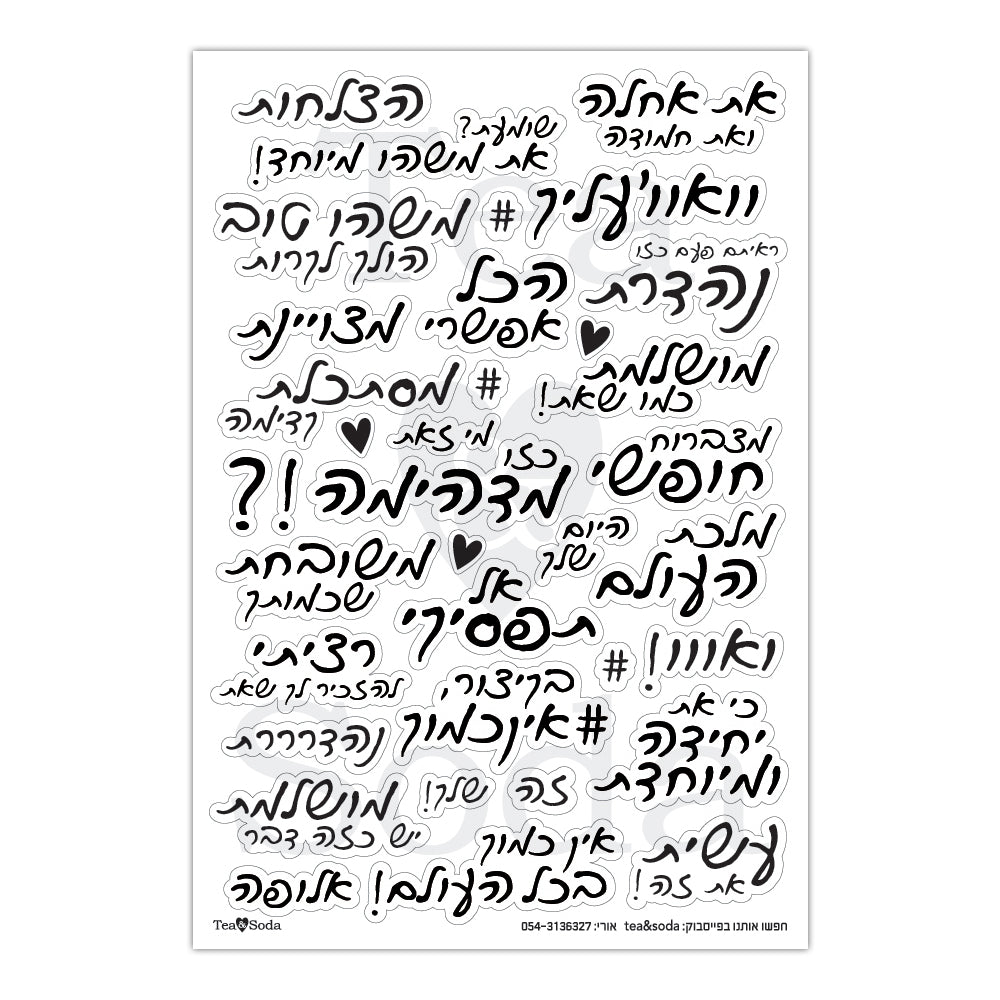 את אחלה
ואת חמודה
הצלחות
שומעת?
את משהו מיוחד!
וואוו'עליך
#
משהו טוב
הולך לקרות
ראיתם פעם כזו
נהדרת
הכל
אפשרי
מצויינת
מושלמת
כמו שאת!
#
מסתכלת
קדימה
מי זאת
כזו
מדהימה
!?
מצברוח
חופשי
מלכת
העולם
היום
שלך
משובחת
שכמותך
אל
תפסיקי
ואווו!
#
רציתי
להזכיר לך שאת
כי את
יחידה
ומיוחדת
בקיצור,
#אינכמוך
נהדרררת
זה שלך!
מושלמת
יש כזה דבר
עשית
את זה!
אין כמוך
בכל העולם!
אלופה
חפשו אותנו בפייסבוק: tea&soda אורי: 054-3136327
Tea&Soda
Tea
&
Soda